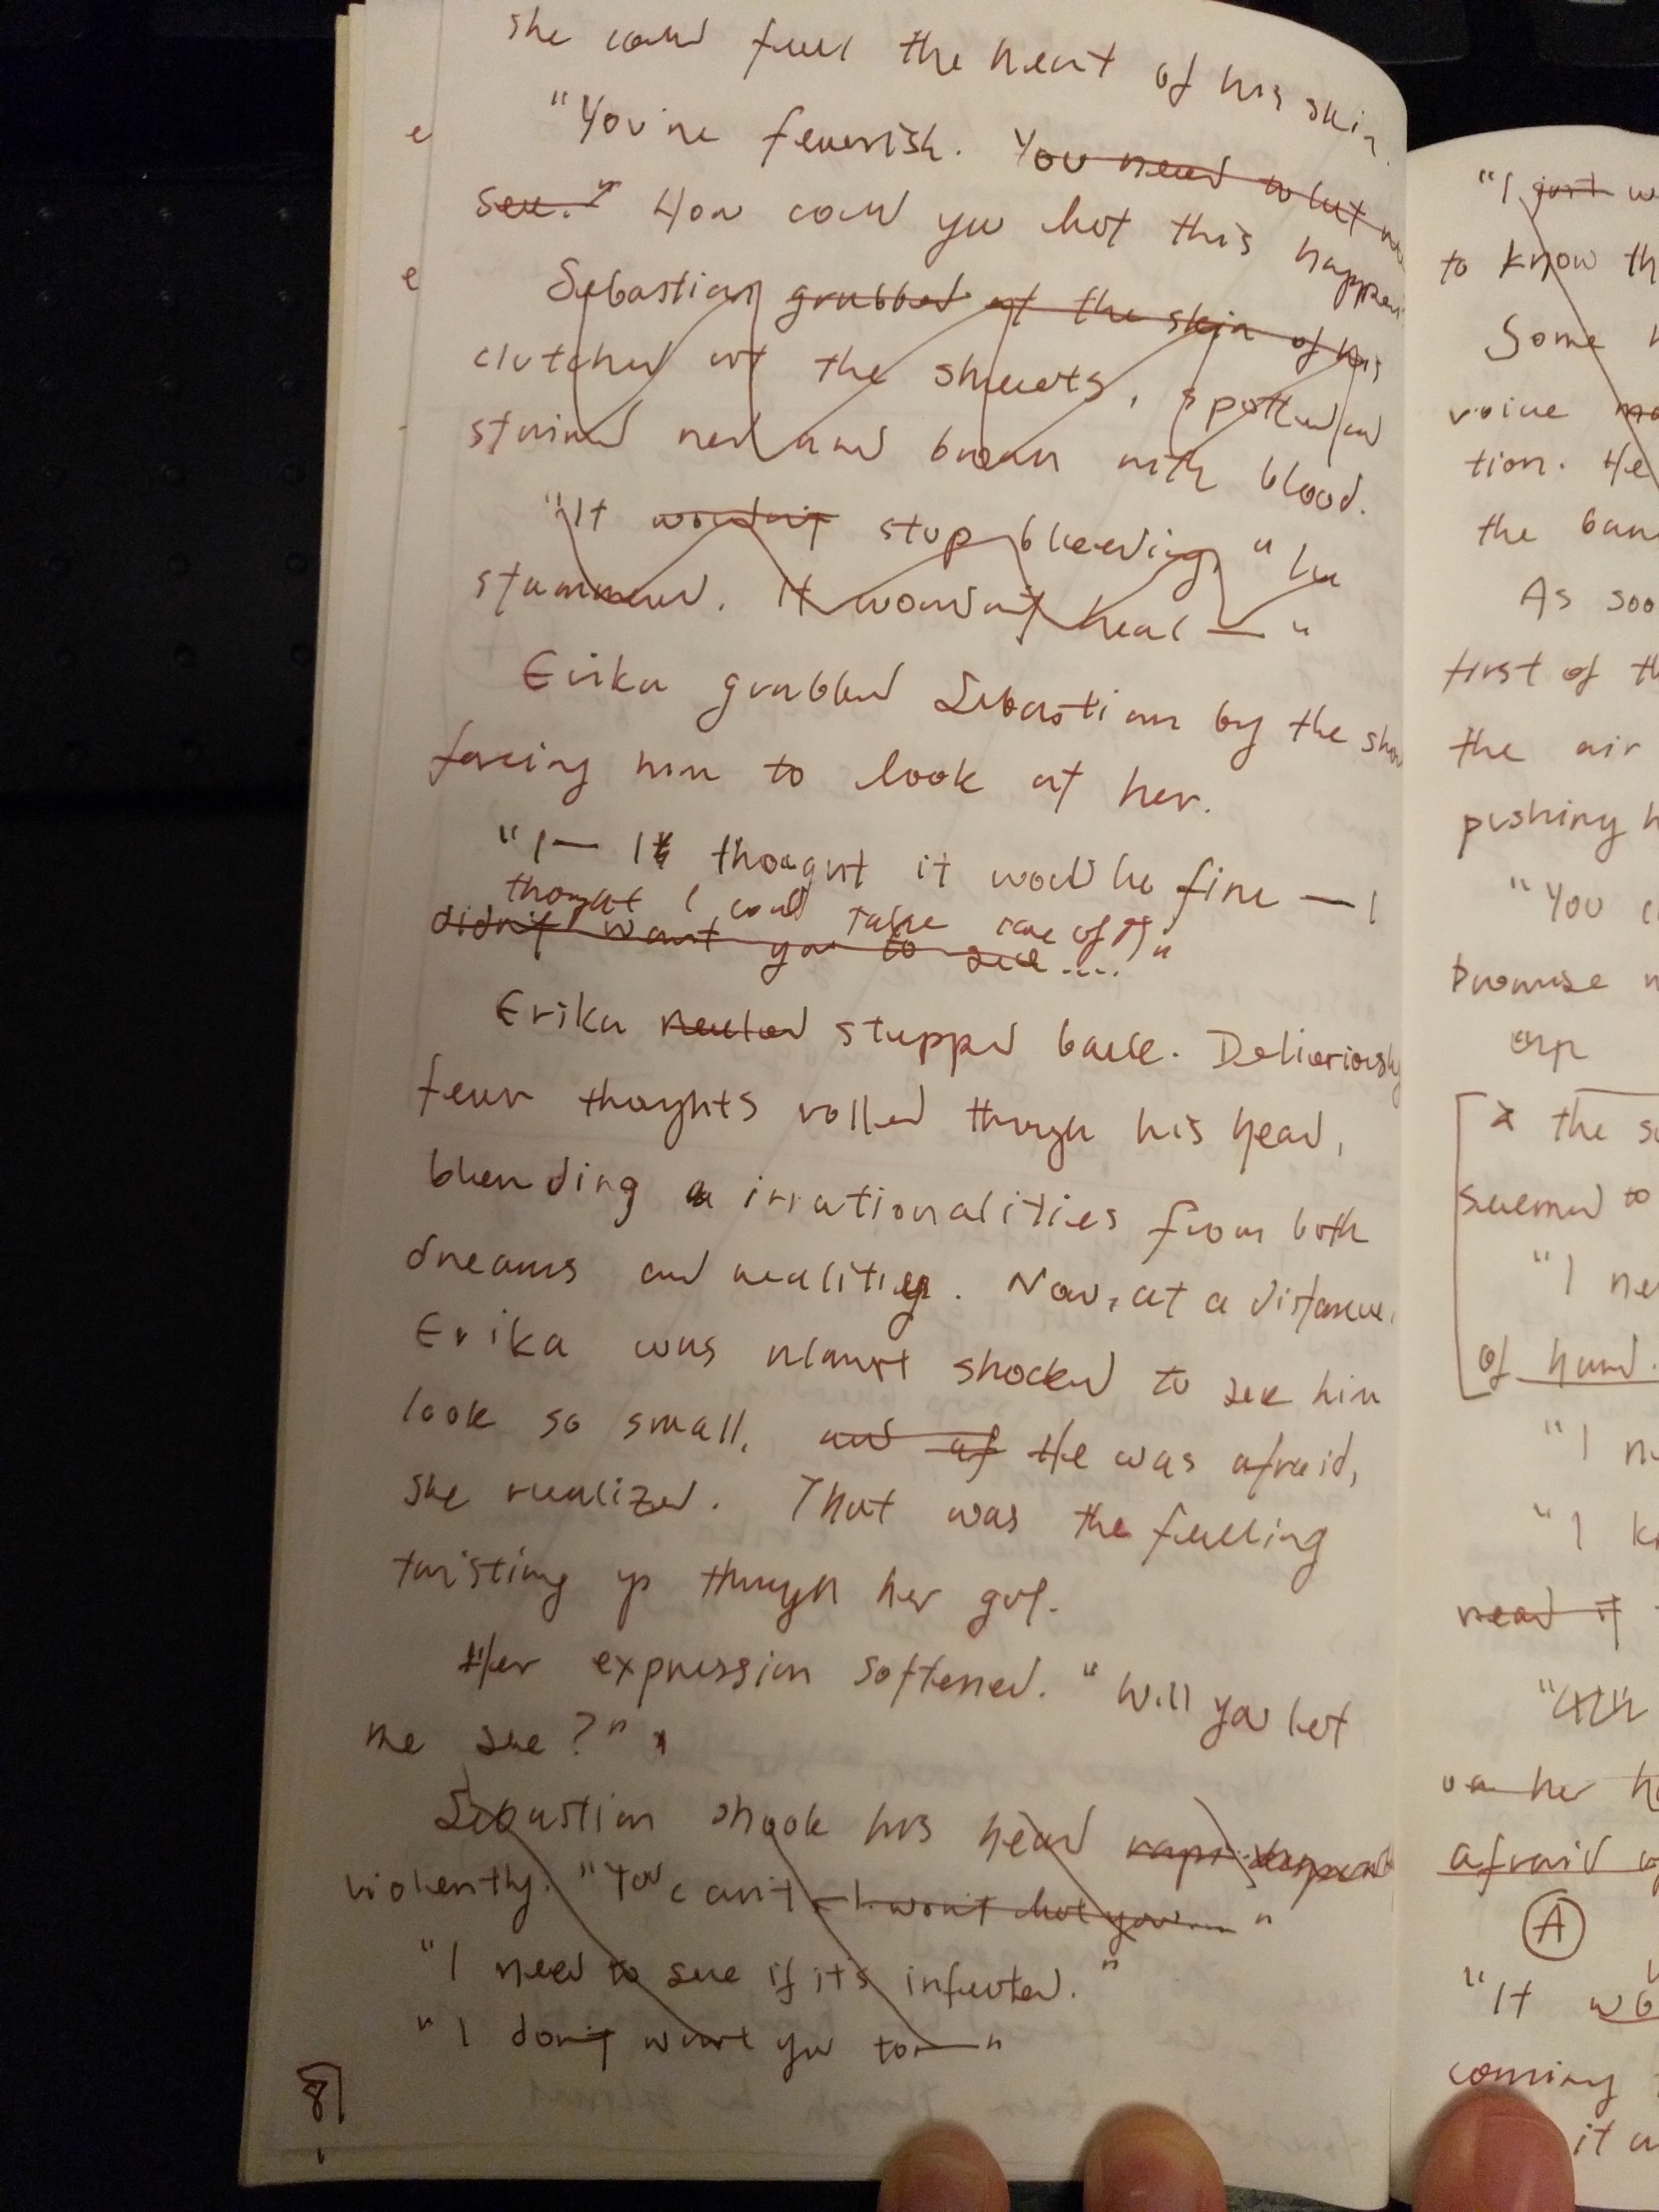 she could feel the heat of his skin.
"You're feverish. You need to let
see." How could you let this happen
e
Sebastian grabbed at the skin of his
e
clutched at the sheets, spotted and
stained red and brown with blood.
"It wouldn't stop bleeding," he
stammered. It wouldn't heal — "
Erika grabbed Sebastian by the
forcing him to look at her.
"I— I thought it would be fine — I
thought I could take care of it"
didn't want you to see...."
Erika stepped back. Deliriously
fever thoughts rolled through his head,
blending irrationalities from both
dreams and realities. Now, at a distance,
Erika was almost shocked to see him
look so small. and af He was afraid,
she realized. That was the feeling
twisting up through her gut.
Her expression softened. "Will you let
me see?"
Sebastian shook his head
violently. "You can't - I won't let you.... "
"I need to see if it's infected."
"I don't want you to— "
81
"I just w
to know th
Some h
voice
tion. He
the ban
As soo
first of th
the air
pushing h
"You c
promise
x the s
seemed to
"I ne
of hand.
"I n
"I k
read it
on her h
afraid
A
"It wo
coming
it